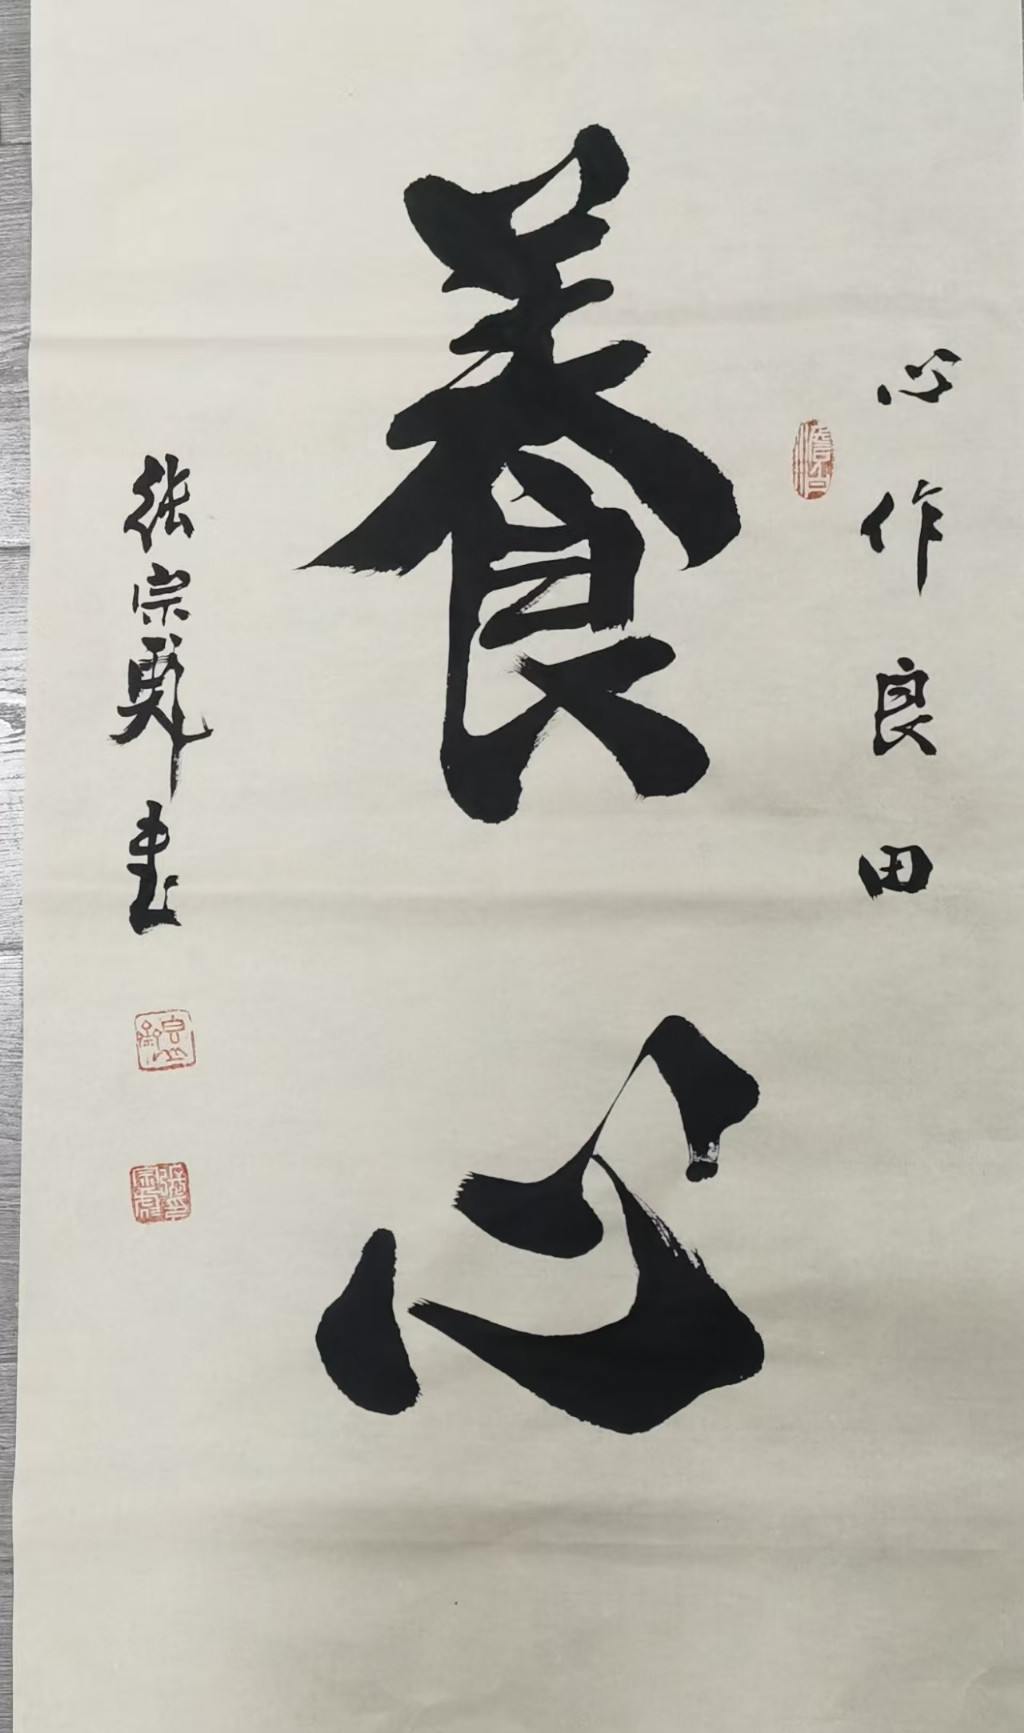 心作良田
養心
張宗彪書